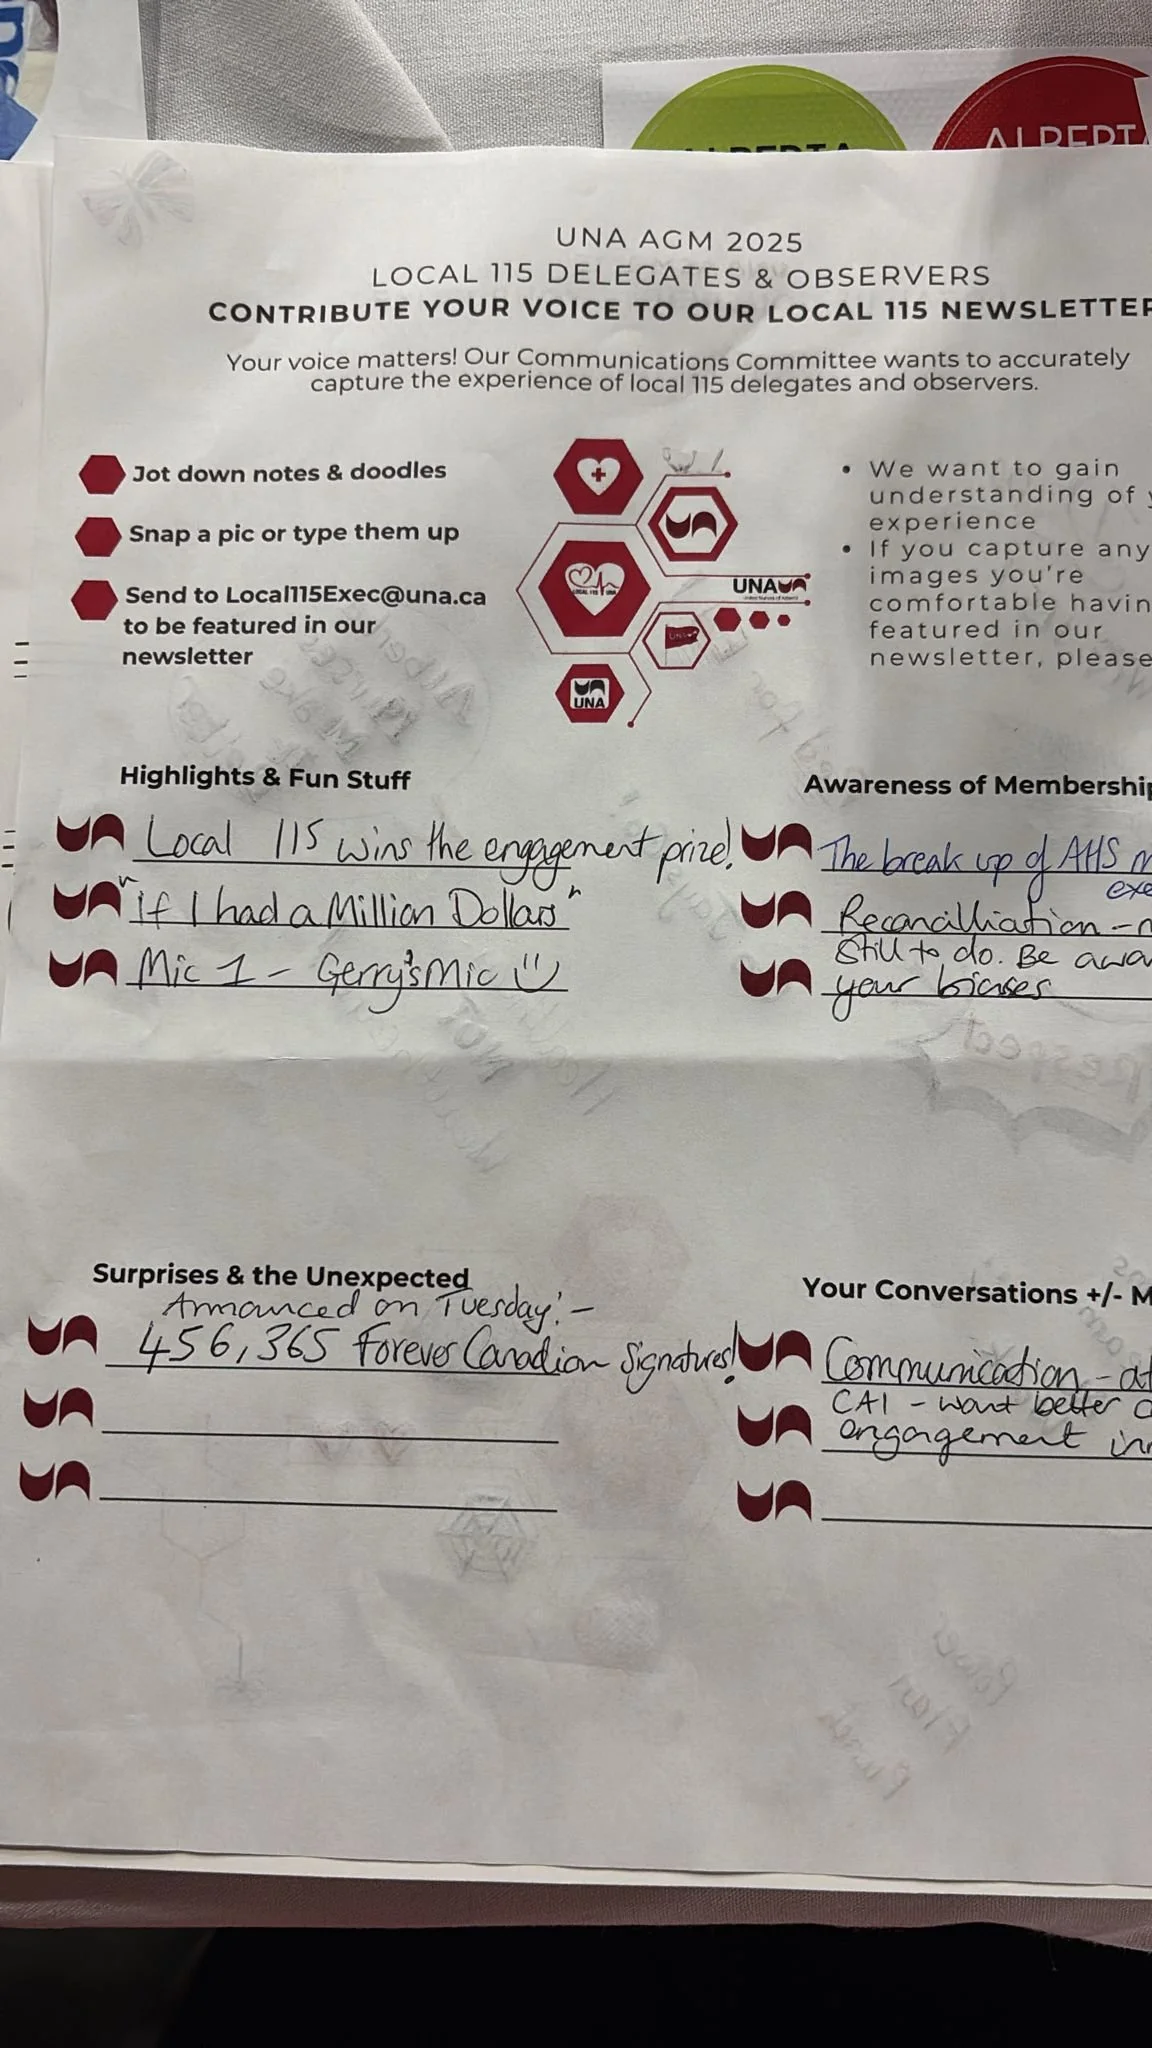 ALBERTA
ALBERT
UNA AGM 2025
LOCAL 115 DELEGATES & OBSERVERS
CONTRIBUTE YOUR VOICE TO OUR LOCAL 115 NEWSLETTER
Your voice matters! Our Communications Committee wants to accurately
capture the experience of local 115 delegates and observers.
Jot down notes & doodles
Snap a pic or type them up
Send to Local115Exec@una.ca
to be featured in our
newsletter
UNA
UNA
• We want to gain
understanding of
experience
• If you capture any
images you're
comfortable havin
featured in our
newsletter, please
Highlights & Fun Stuff
Local 115 wins the engagement prize!
"If I had a Million Dollars"
Mic 1 - Gerry's Mic
Awareness of Membership
The break up of AHS
exe
Reconcilliation -
Still to do. Be awa
your biases
Surprises & the Unexpected
Announced on Tuesday! -
456,365 Forever Canadian Signatures!
Your Conversations +/- M
Communication - at
CAI - want better
engagement in
Respect